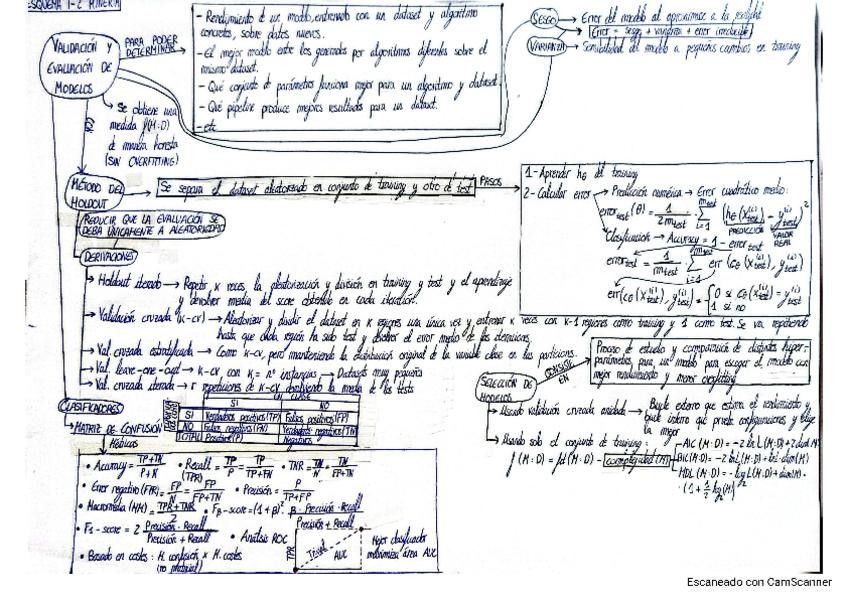 ESQUEMA 1-2 MINERÍA
VALIDACIÓN Y
EVALUACIÓN DE
MODELOS
PARA PODER
DETERMINAR
- Rendimiento de un modelo, entrenado con un dataset y algoritmo
concretos, sobre datos nuevos.
- El mejor modelo entre los generados por algoritmos diferentes sobre el
mismo dataset.
- Qué conjunto de parámetros funciona mejor para un algoritmo y dataset.
- Qué pipeline produce mejores resultados para un dataset.
- etc
SESGO → Error del modelo al aproximarse a la realidad
Error = sesgo + varianza + error irreducible
VARIANZA → Sensibilidad del modelo a pequeños cambios en training
Se obtiene una
medida f(M:D)
de manera honesta
(SIN OVERFITTING)
MÉTODO DEL
HOLDOUT
Se separa el dataset aleatorizado en conjunto de training y otro de test
PASOS
1- Aprender hθ del training
2- Calcular error → Predicción numérica → Error cuadrático medio:
error test (θ) = 1/2m test · Σ (hθ(x test (i)) - y test (i))²
PREDICCIÓN VALOR REAL
Clasificación → Accuracy = 1 - error test
error test = 1/m test · Σ err (cθ(x test (i)), y test (i))
err(cθ(x test (i)), y test (i)) = { 0 si cθ(x test (i)) = y test (i)
1 si no
REDUCIR QUE LA EVALUACIÓN SE
DEBA ÚNICAMENTE A ALEATORIEDAD
DERIVACIONES
Holdout iterado → Repetir k veces, la aleatorización y división en training y test y el aprendizaje
y devolver media del score obtenido en cada iteración.
Validación cruzada (k-cv) → Aleatorizar y dividir el dataset en k regiones una única vez y entrenar k veces con k-1 regiones como training y 1 como test. Se va repitiendo
hasta que cada región ha sido test y devolver el error medio de las iteraciones.
Val. cruzada estratificada → Como k-cv, pero manteniendo la distribución original de la variable clase en las particiones.
Val. leave-one-out → k-cv con k = nº instancias → Datasets muy pequeños
Val. cruzada iterada → r repeticiones de k-cv devolviendo la media de los tests
SELECCIÓN DE
MODELOS
CONSISTE
EN
Proceso de estudio y comparación de distintos hiper-
parámetros para un modelo para escoger el modelo con
mejor rendimiento y menor overfitting
Usando validación cruzada anidada → Bucle externo que estima el rendimiento y
bucle interno que prueba configuraciones y elige
la mejor
Usando solo el conjunto de training:
f(M:D) = fd(M:D) - complejidad(M)
AIC(M:D) = -2 ln L(M:D) + 2 dim(M)
MDL(M:D) = -log L(M:D) + dim(M)·
CLASIFICADORES
MATRIZ DE CONFUSIÓN
CLASE
SI NO
SI Verdaderos positivos (TP) Falsos positivos (FP)
NO Falsos negativos (FN) Verdaderos negativos (TN)
TOTAL Positivos (P) Negativos
Métricas
• Accuracy = TP+TN / P+N • Recall (TPR) = TP/P = TP/TP+FN • TNR = TN/N = TN/FP+TN
• Error negativo (FPR) = FP/N = FP/FP+TN • Precisión = P/TP+FP
• Macromedia (MM) = TPR+TNR/2 • Fβ-score = (1+β)² · β · Precisión · Recall / Precisión + Recall
• F1-score = 2 Precisión · Recall / Precisión + Recall • Análisis ROC
• Basado en costes: M. confusión x M. costes
TPR
Trivial
AUC
Mejor clasificador
maximiza área AUC
Escaneado con CamScanner